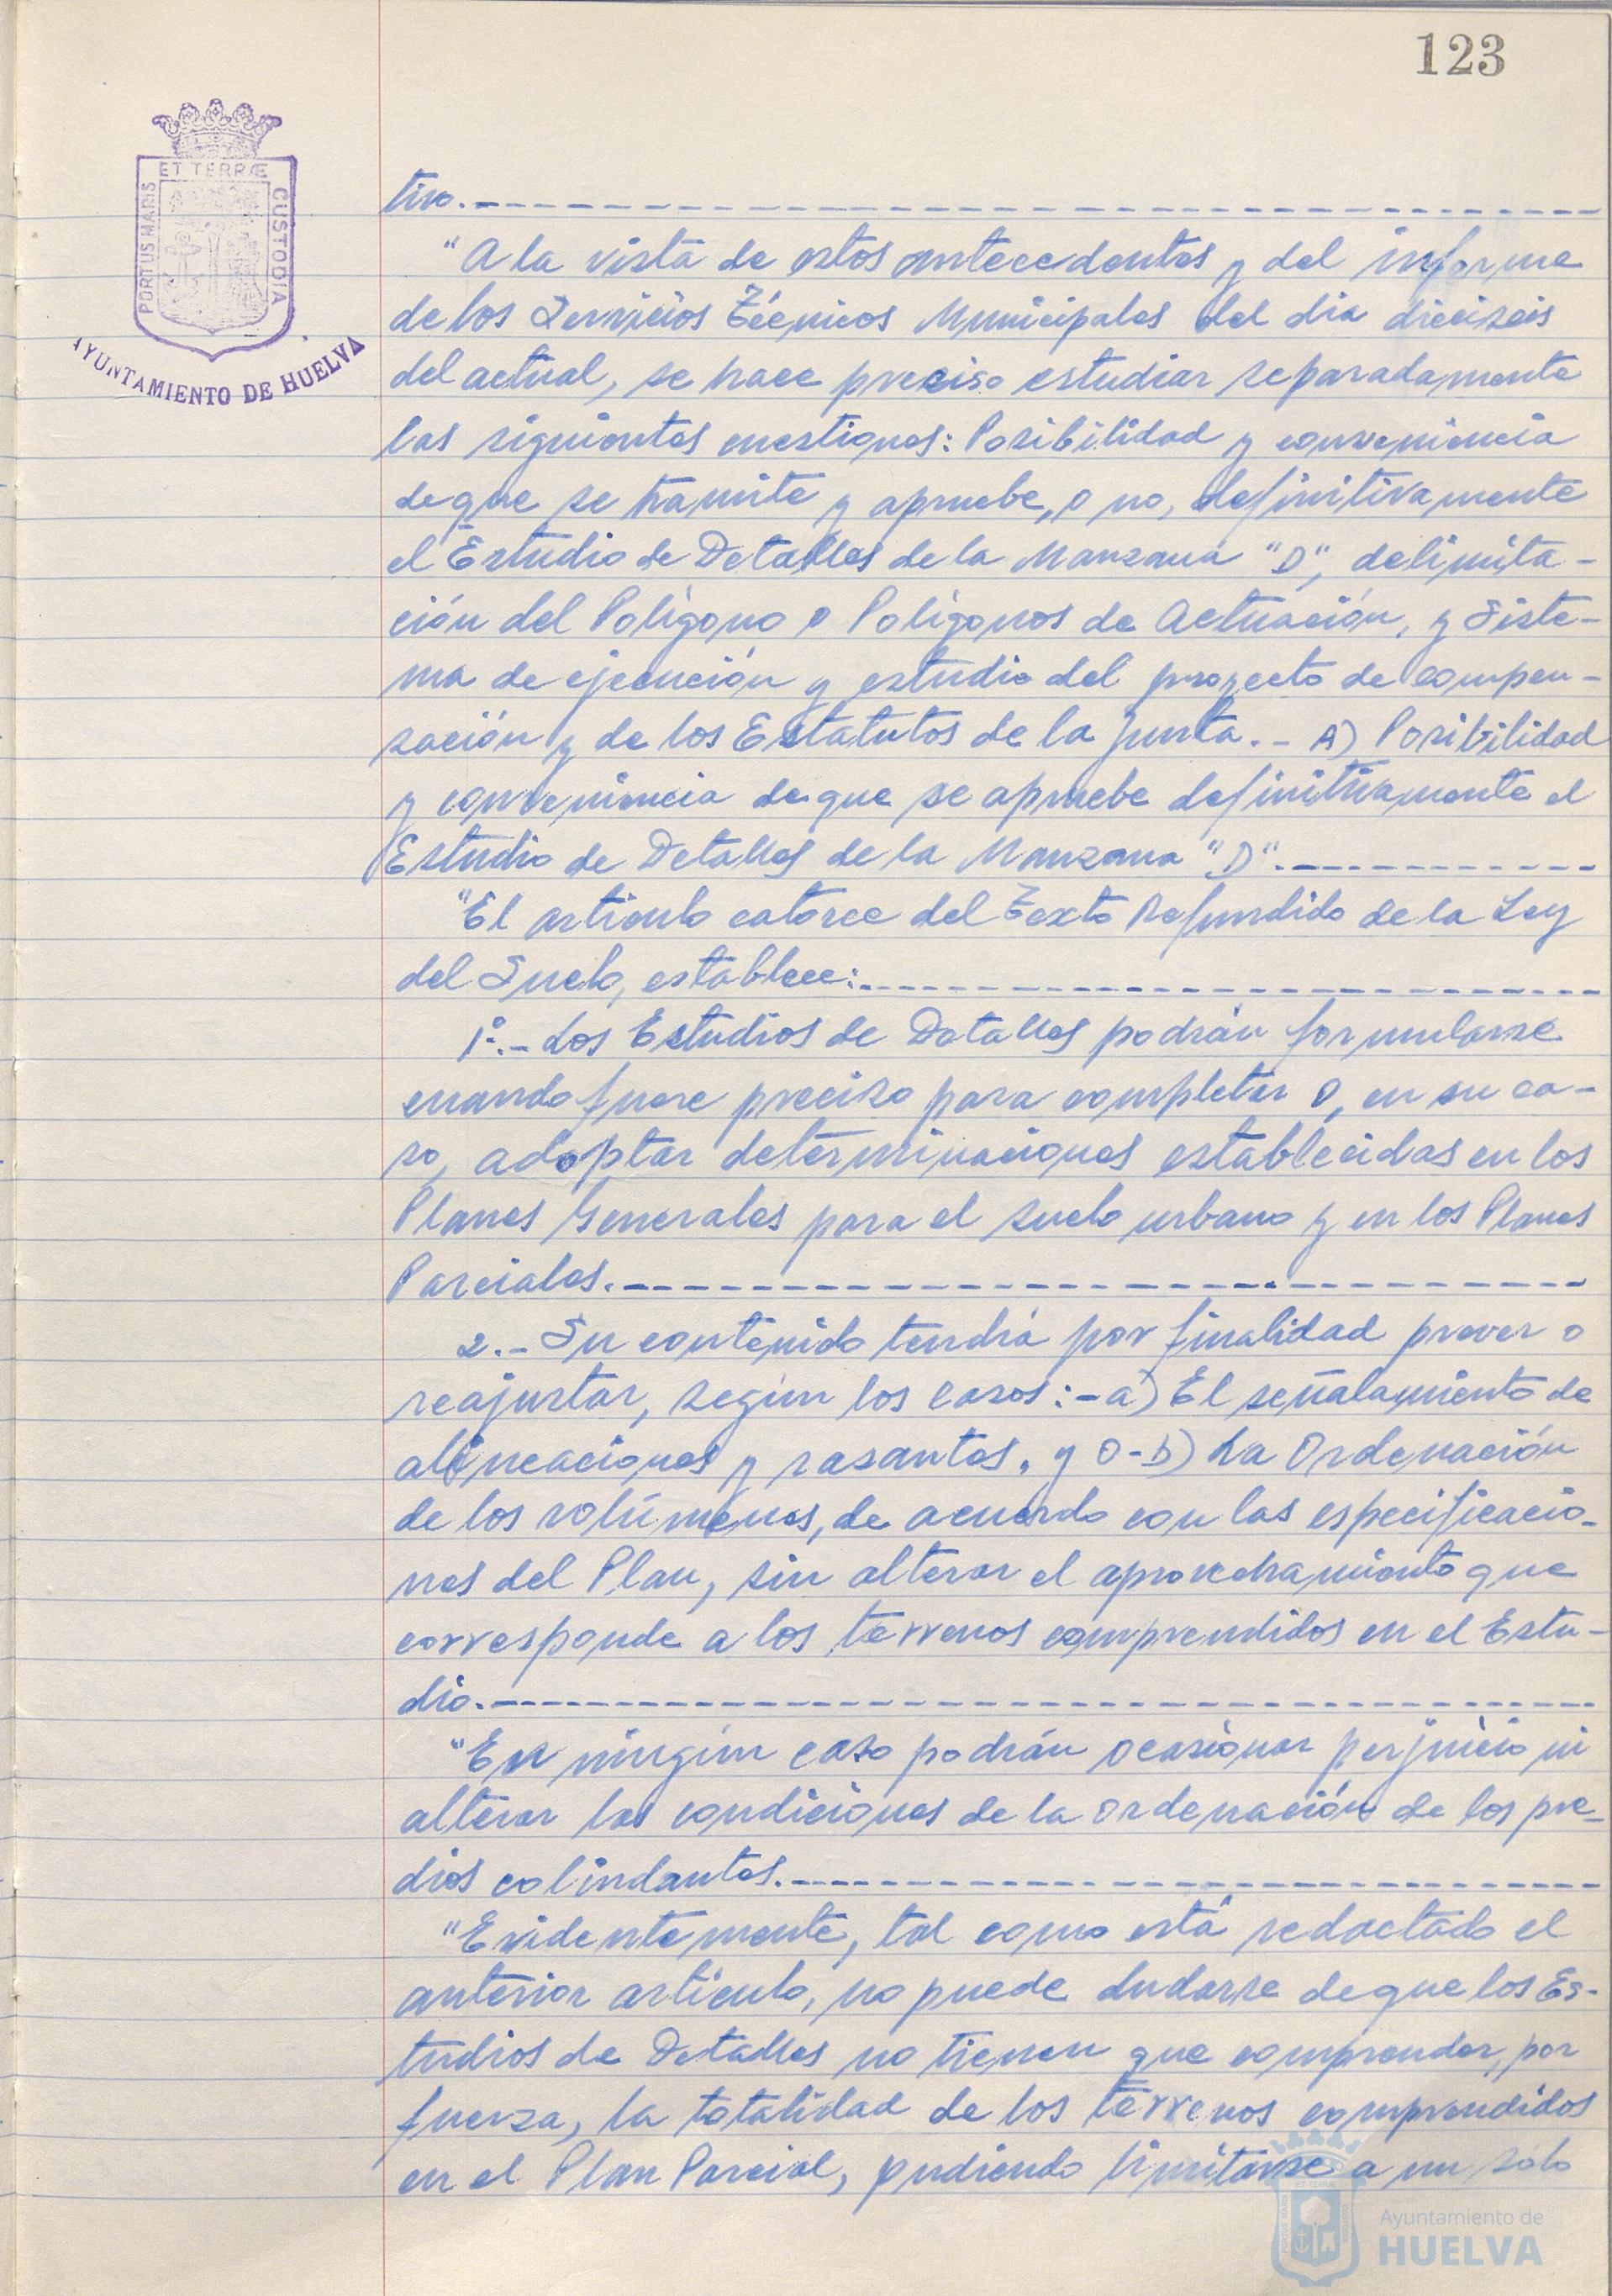 123
ET TERRÆ
PORTUS MARIS
CUSTODIA
AYUNTAMIENTO DE HUELVA
tivo.
"A la vista de estos antecedentes y del informe
de los Servicios Técnicos Municipales del dia dieciseis
del actual, se hace preciso estudiar separadamente
las siguientes cuestiones: Posibilidad y conveniencia
de que se tramite y apruebe, o no, definitivamente
el Estudio de Detalles de la Manzana "D", delimita-
ción del Polígono o Polígonos de Actuación, y Siste-
ma de ejecución y estudio del proyecto de compen-
sación y de los Estatutos de la Junta.- A) Posibilidad
y conveniencia de que se apruebe definitivamente el
Estudio de Detalles de la Manzana "D".
"El artículo catorce del Texto Refundido de la Ley
del Suelo, establece:
1º.- Los Estudios de Detalles podrán formularse
cuando fuere preciso para completar o, en su ca-
so, adoptar determinaciones establecidas en los
Planes Generales para el suelo urbano y en los Planes
Parciales.
2.- Su contenido tendrá por finalidad prever o
reajustar, según los casos:- a) El señalamiento de
alineaciones y rasantes, y o- b) La Ordenación
de los volúmenes, de acuerdo con las especificacio-
nes del Plan, sin alterar el aprovechamiento que
corresponde a los terrenos comprendidos en el Estu-
dio.
"En ningún caso podrán ocasionar perjuicio ni
alterar las condiciones de la ordenación de los pre-
dios colindantes.
"Evidentemente, tal como está redactado el
anterior artículo, no puede dudarse de que los Es-
tudios de Detalles no tienen que comprender, por
fuerza, la totalidad de los terrenos comprendidos
en el Plan Parcial, pudiendo limitarse a un sólo
Ayuntamiento de
HUELVA